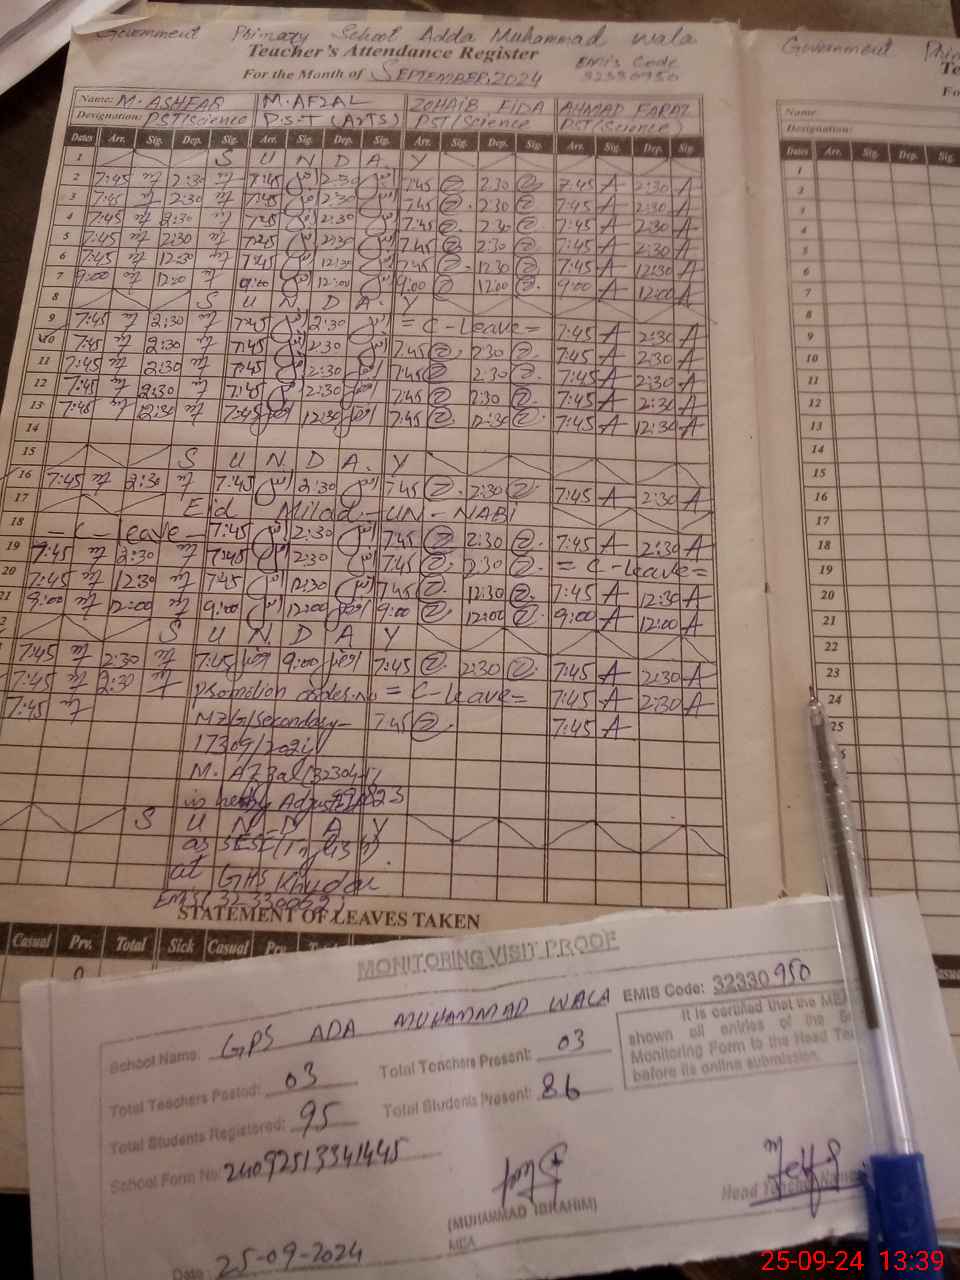 Government Primary School Adda Muhammad Wala
Teacher's Attendance Register
EMIS Code
32330950
For the Month of SEPTEMBER.2024
Name: M. ASHFAQ M. AFZAL ZOHAIB FIDA AHMAD FARAZ
Designation: PST/Science P.S.T (ARTS) PST/Science PST(Science)
Dates Arr. Sig. Dep. Sig. Arr. Sig. Dep. Sig. Arr. Sig. Dep. Sig. Arr. Sig. Dep. Sig.
1 S U N D A. Y
2 7:45 2:30 7:45 2:30 7:45 2:30 7:45 A 2:30 A
3 7:45 2:30 7:45 2:30 7:45 2:30 7:45 A 2:30 A
4 7:45 2:30 7:45 2:30 7:45 2:30 7:45 A 2:30 A
5 7:45 2:30 7:45 2:30 7:45 2:30 7:45 A 2:30 A
6 7:45 12:30 7:45 12:30 7:45 12:30 7:45 A 12:30 A
7 9:00 12:00 9:00 12:00 9:00 12:00 9:00 A 12:00 A
8 S U N. D A. Y
9 7:45 2:30 7:45 2:30 = C-Leave = 7:45 A 2:30 A
10 7:45 2:30 7:45 2:30 7:45 2:30 7:45 A 2:30 A
11 7:45 2:30 7:45 2:30 7:45 2:30 7:45 A 2:30 A
12 7:45 2:30 7:45 2:30 7:45 2:30 7:45 A 2:30 A
13 7:45 12:30 7:45 12:30 7:45 12:30 7:45 A 12:30 A
14
15 S U N. D A. Y
16 7:45 2:30 7:45 2:30 7:45 2:30 7:45 A 2:30 A
17 Eid Milad-UN-NABI
18 - C- Leave - 7:45 2:30 7:45 2:30 7:45 A 2:30 A
19 7:45 2:30 7:45 2:30 7:45 2:30 = C-Leave =
20 7:45 12:30 7:45 12:30 7:45 12:30 7:45 A 12:30 A
21 9:00 12:00 9:00 12:00 9:00 12:00 9:00 A 12:00 A
2 S U N D A Y
7:45 2:30 7:45 9:00 7:45 2:30 7:45 A 2:30 A
7:45 2:30 promotion orders.no = C-Leave = 7:45 A 2:30 A
7:45 MZG/Secondary- 7:45 7:45 A
M. Afzal
is hereby Adjusted
S U N D A Y
as SESE
at GHS
STATEMENT OF LEAVES TAKEN
Casual Prv. Total Sick Casual Prv.
0
Government
Name:
Designation:
Dates Arr. Sig. Dep. Sig.
1
2
3
4
5
6
7
8
9
10
11
12
13
14
15
16
17
18
19
20
21
22
23
24
25
MONITORING VISIT PROOF
School Name: GPS ADA MUHAMMAD WALA EMIS Code: 32330950
Total Teachers Posted: 03 Total Teachers Present: 03
Total Students Registered: 95 Total Students Present: 86
School Form No: 24092513341445
It is certified that the MEA
shown all entries of the
Monitoring Form to the Head
before its online submission.
(MUHAMMAD IBRAHIM)
MEA
Head Teacher Name
Date: 25-09-2024
25-09-24 13:39